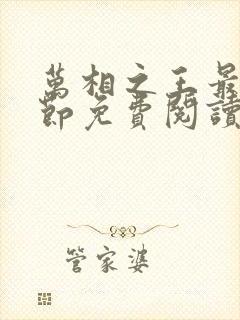 萬相之王最
節免費閱讀
管家婆